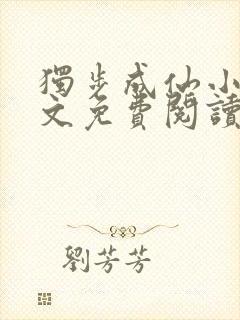 獨步成仙小
文免費閱讀
劉芳芳